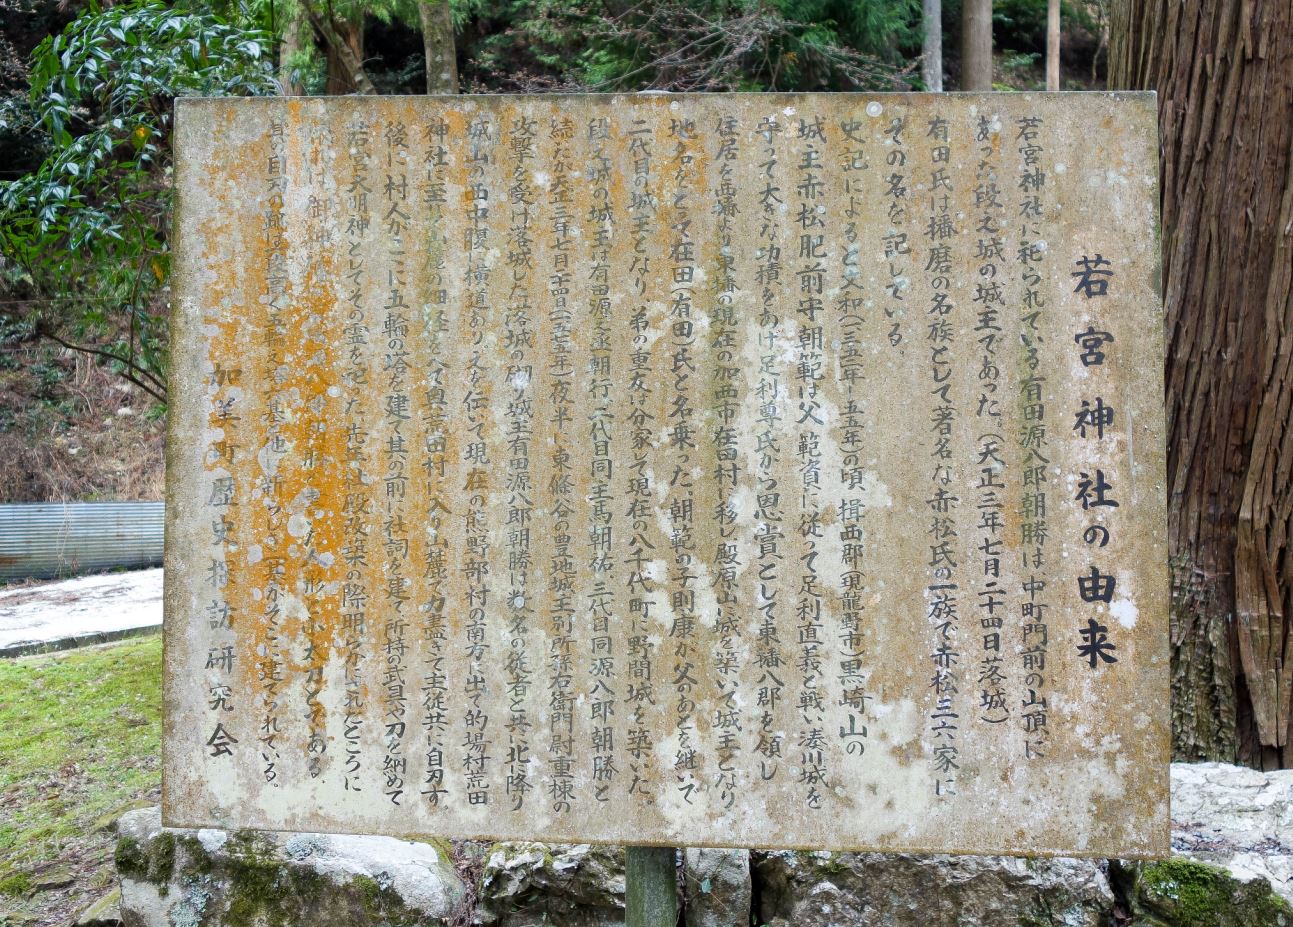 若宮神社の由来
若宮神社に祀られている有田源八郎朝勝は中町門前の山頂に
あった段之城の城主であった。(天正三年七月二十四日落城)
有田氏は播磨の名族として著名な赤松氏の一族で赤松三六家に
その名を記している。
史記によると文和(一三五二年-五五年)の頃 揖西郡(現龍野市)黒崎山の
城主赤松肥前守朝範は父 範資に従って足利直義と戦い湊川城を
守って大きな功積をあげ足利尊氏から恩賞として東播八郡を領し
住居を西播より東播の現在の加西市在田村に移し殿原山に城を築いて城主となり
地名をとって在田(有田)氏と名乗った、朝範の子則康が父のあとを継いで
二代目の城主となり、弟の重友は分家して現在の八千代町に野間城を築いた。
段之城の城主は有田源之丞朝行 二代目同主馬朝佑、三代目同源八郎朝勝と
続たが天正三年七月二十四日(一五七五年)夜半に東條谷の豊地城主別所孫右衛門尉重棟の
攻撃を受け落城した 落城の砌り城主有田源八郎朝勝は数名の従者と共に北に降り
城山の西中腹に横道あり之を伝いて現在の熊野部村の南方に出て的場村荒田
神社に至り 山麓の細径をへて奥荒田村に入り山麓で力盡きて主従共に自刃す
後に村人がここに五輪の塔を建て其の前に社詞を建て所持の武具や刀を納めて
若宮大明神としてその霊を祀った 先年社殿改築の際明らかにされたところに
は 御神 八 形 人形と小太刀とである
自刃の跡は 五輪 基 他に新らしく一基がそこに建てられている。
加美町歴史探訪研究会